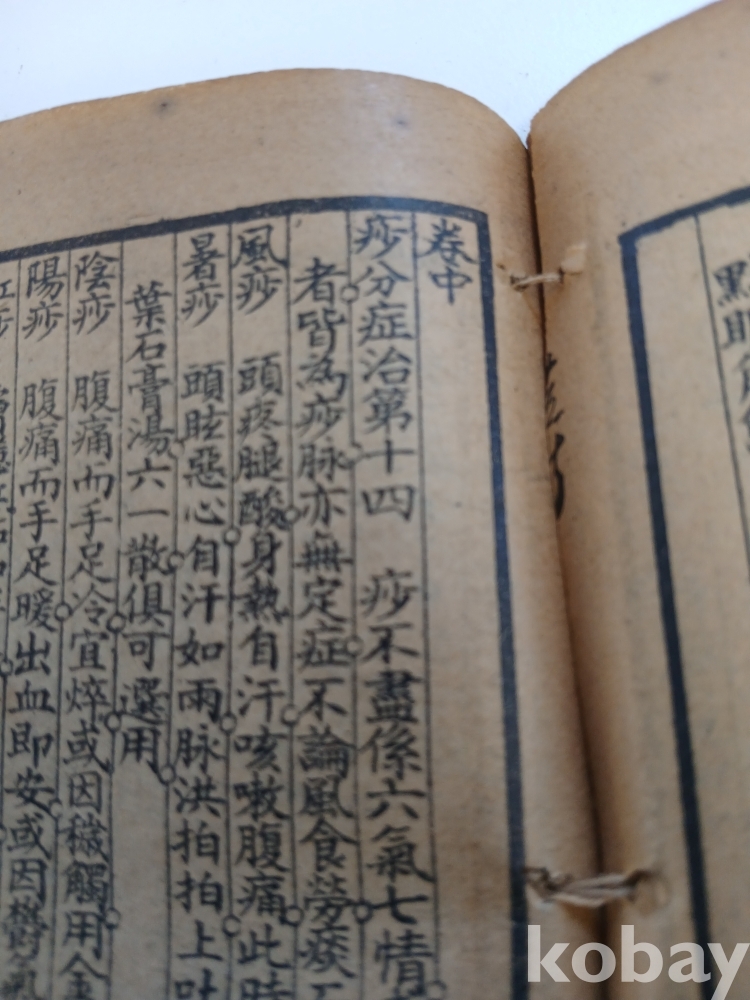 卷中
痧分症治第十四 痧不盡係六氣七情
者皆為痧脉亦無定症不論風食勞痰
風痧 頭疼腿酸身熱自汗咳嗽腹痛此時
暑痧 頭眩惡心自汗如雨脉洪拍拍上吐
葉石膏湯六一散俱可選用
陰痧 腹痛而手足冷宜焠或因穢觸用金
陽痧 腹痛而手足暖出血即安或因鬱氣
kobay